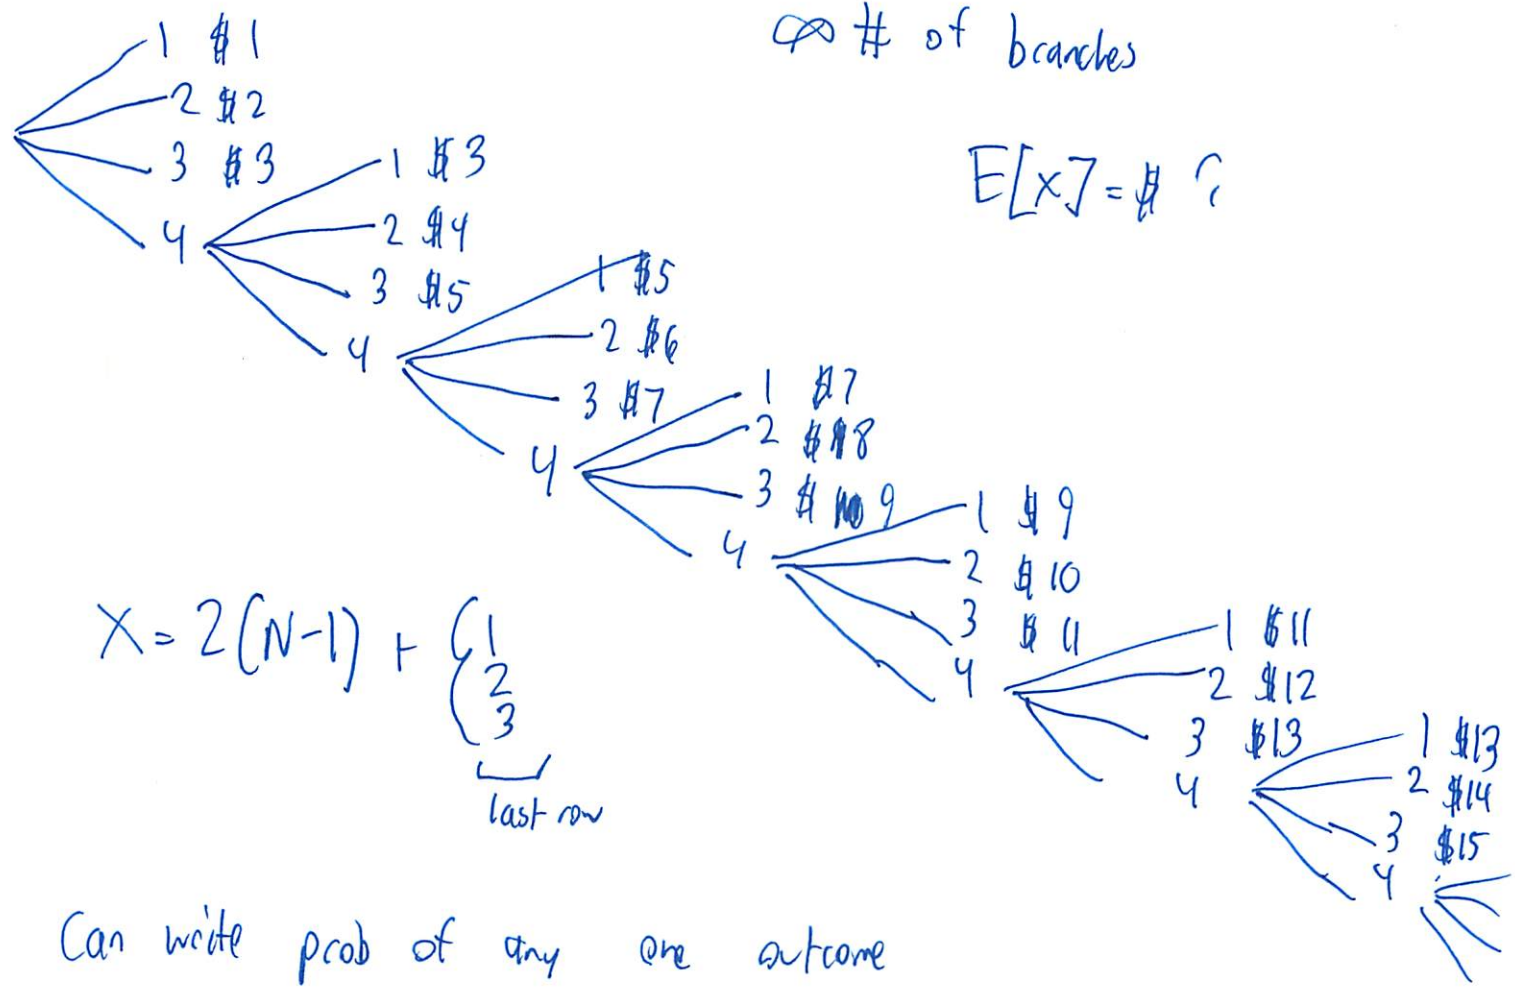 ∞ # of branches
1 $1
2 $2
3 $3
4
1 $3
2 $4
3 $5
4
1 $5
2 $6
3 $7
4
1 $7
2 $8
3 $ 9
4
1 $9
2 $10
3 $11
4
1 $11
2 $12
3 $13
4
1 $13
2 $14
3 $15
4
E[x] = $ ?
X = 2(N-1) + { 1
2
3
last row
Can write prob of any one outcome